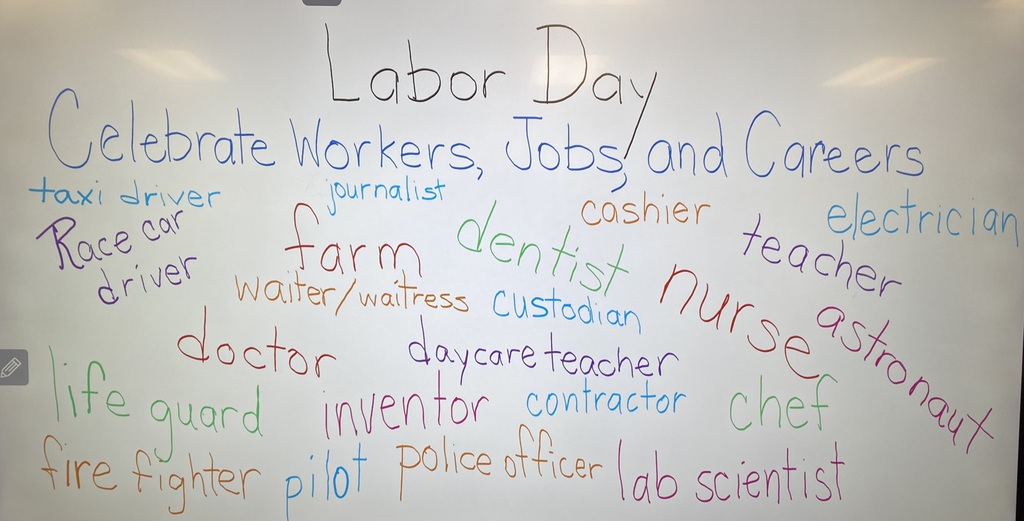 Labor Day
Celebrate Workers, Jobs, and Careers
taxi driver
journalist
cashier
electrician
Race car
driver
farm
dentist
teacher
waiter/waitress
custodian
nurse
astronaut
doctor
daycare teacher
life guard
inventor
contractor
chef
fire fighter
pilot
police officer
lab scientist